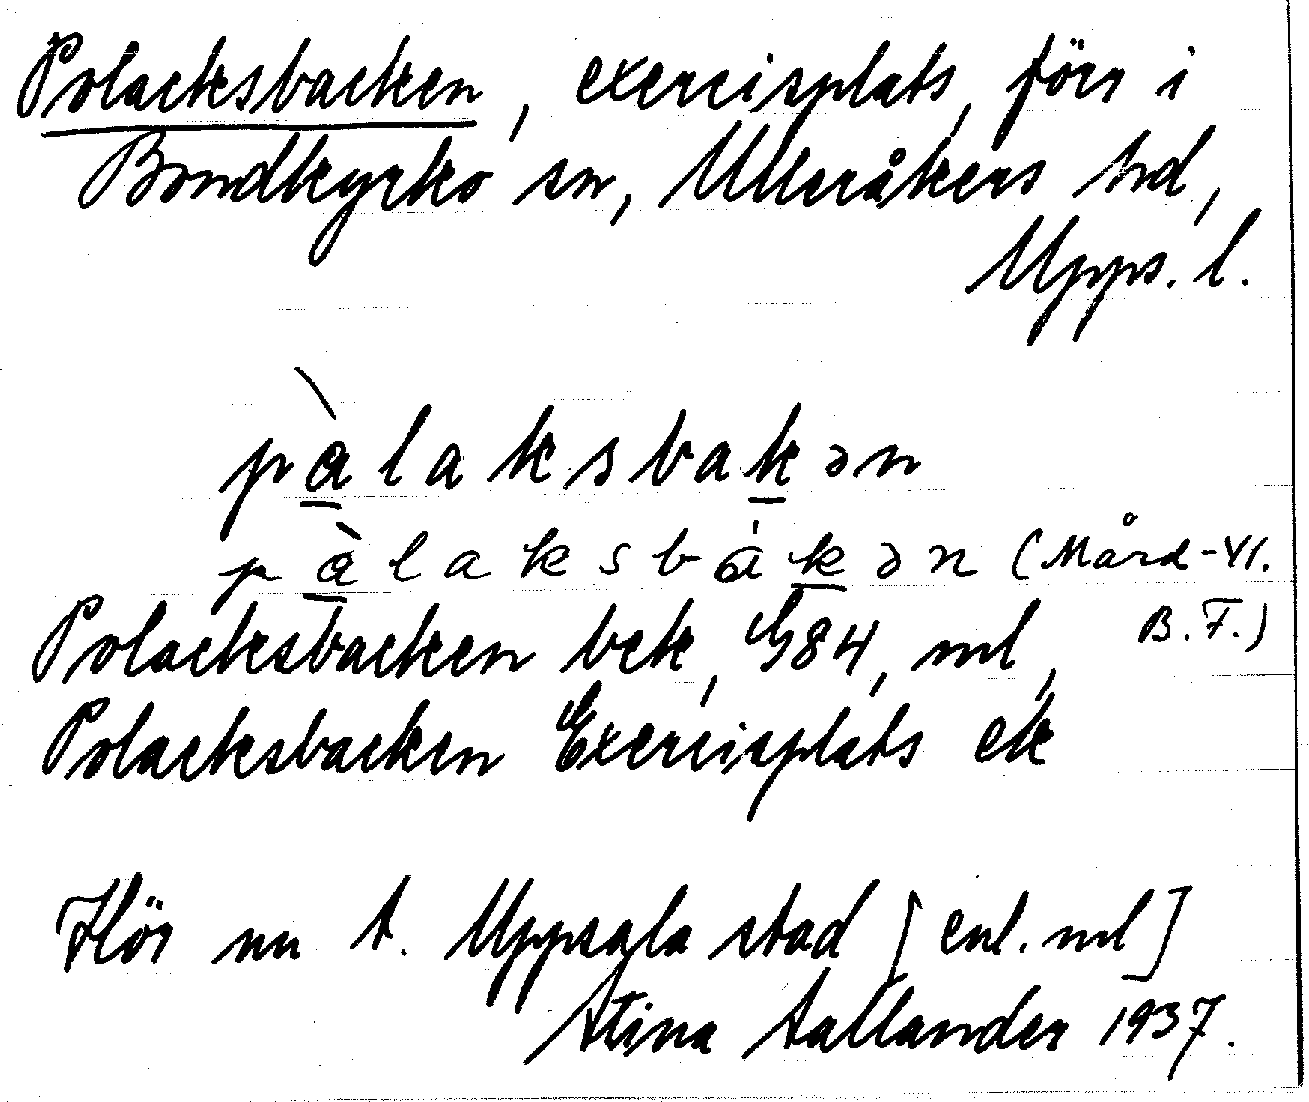 Polacksbacken, exercisplats, förr i
Bondkyrko sn, Ulleråkers hd,
Upps. l.
pàlaksbakən
pàlaksbákən (Mård-YI.
B.F.)
Polacksbacken bek, G84, ml,
Polacksbacken Exercisplats ek
Hör nu t. Uppsala stad [enl. ml]
Stina Sallander 1937.